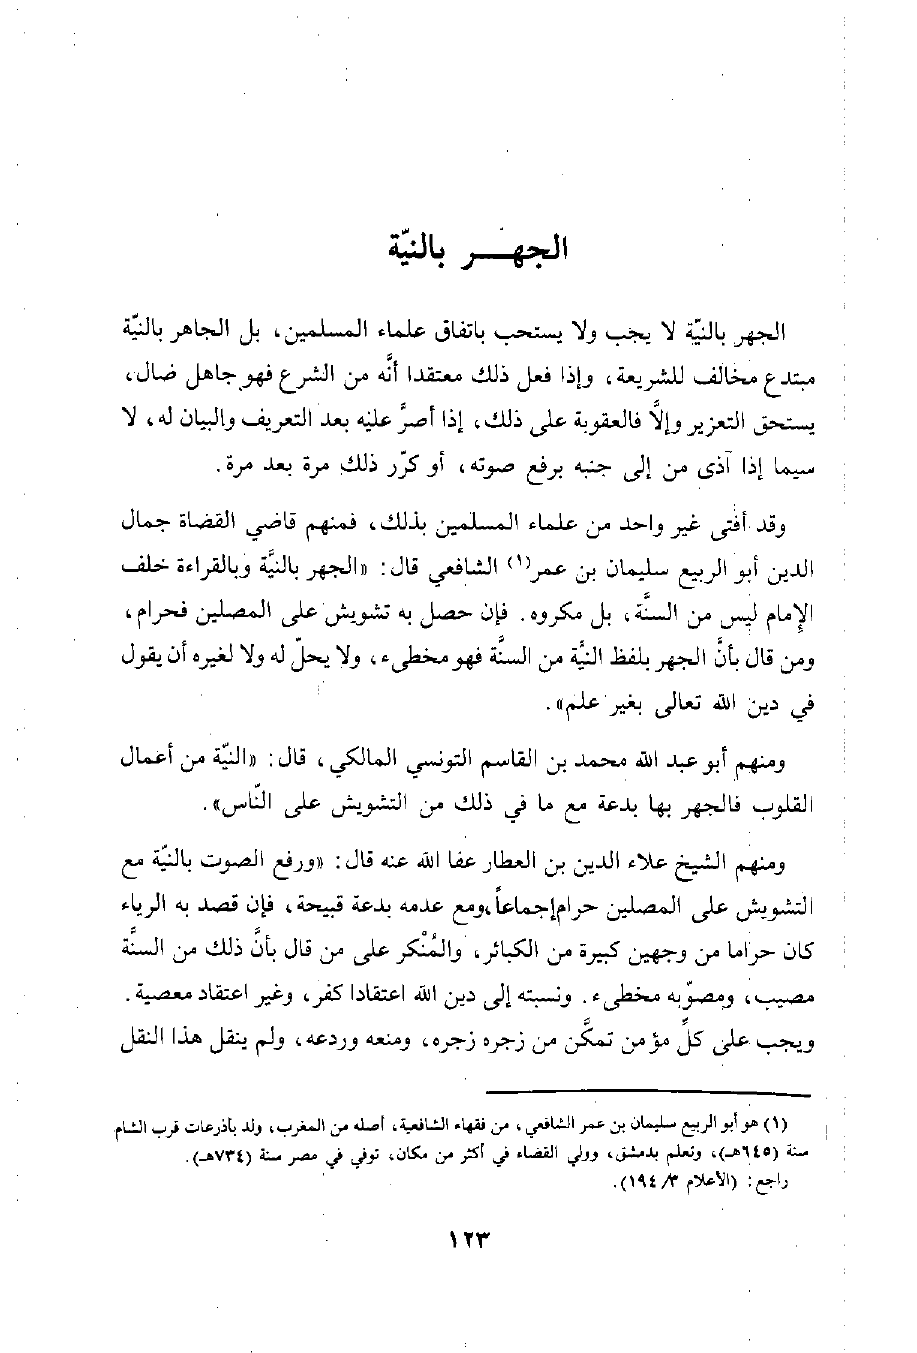 الجهـــر بالنيّة
الجهر بالنيّة لا يجب ولا يستحب باتفاق علماء المسلمين، بل الجاهر بالنيّة
مبتدع مخالف للشريعة، وإذا فعل ذلك معتقدا أنَّه من الشرع فهو جاهل ضال،
يستحق التعزير وإلَّا فالعقوبة على ذلك، إذا أصرَّ عليه بعد التعريف والبيان له، لا
سيما إذا آذى من إلى جنبه برفع صوته، أو كرّر ذلك مرة بعد مرة.
وقد أفتى غير واحد من علماء المسلمين بذلك، فمنهم قاضي القضاة جمال
الدين أبو الربيع سليمان بن عمر(١) الشافعي قال: «الجهر بالنيَّة وبالقراءة خلف
الإمام ليس من السنَّة، بل مكروه. فإن حصل به تشويش على المصلين فحرام،
ومن قال بأنَّ الجهر بلفظ النيَّة من السنَّة فهو مخطىء، ولا يحلّ له ولا لغيره أن يقول
في دين الله تعالى بغير علم».
ومنهم أبو عبد الله محمد بن القاسم التونسي المالكي، قال: «النيّة من أعمال
القلوب فالجهر بها بدعة مع ما في ذلك من التشويش على النّاس».
ومنهم الشيخ علاء الدين بن العطار عفا الله عنه قال: «ورفع الصوت بالنيّة مع
التشويش على المصلين حرام إجماعاً، ومع عدمه بدعة قبيحة، فإن قصد به الرياء
كان حراما من وجهين كبيرة من الكبائر، والمُنْكر على من قال بأنَّ ذلك من السنَّة
مصيب، ومصوّبه مخطىء. ونسبته إلى دين الله اعتقادا كفر، وغير اعتقاد معصية.
ويجب على كلِّ مؤمن تمكَّن من زجره زجره، ومنعه وردعه، ولم ينقل هذا النقل
(١) هو أبو الربيع سليمان بن عمر الشافعي، من فقهاء الشافعية، أصله من المغرب، ولد بأذرعات قرب الشام
سنة (٦٤٥هـ)، وتعلم بدمشق، وولي القضاء في أكثر من مكان، توفي في مصر سنة (٧٣٤هـ).
راجع: (الأعلام ٣/ ١٩٤).
١٢٣